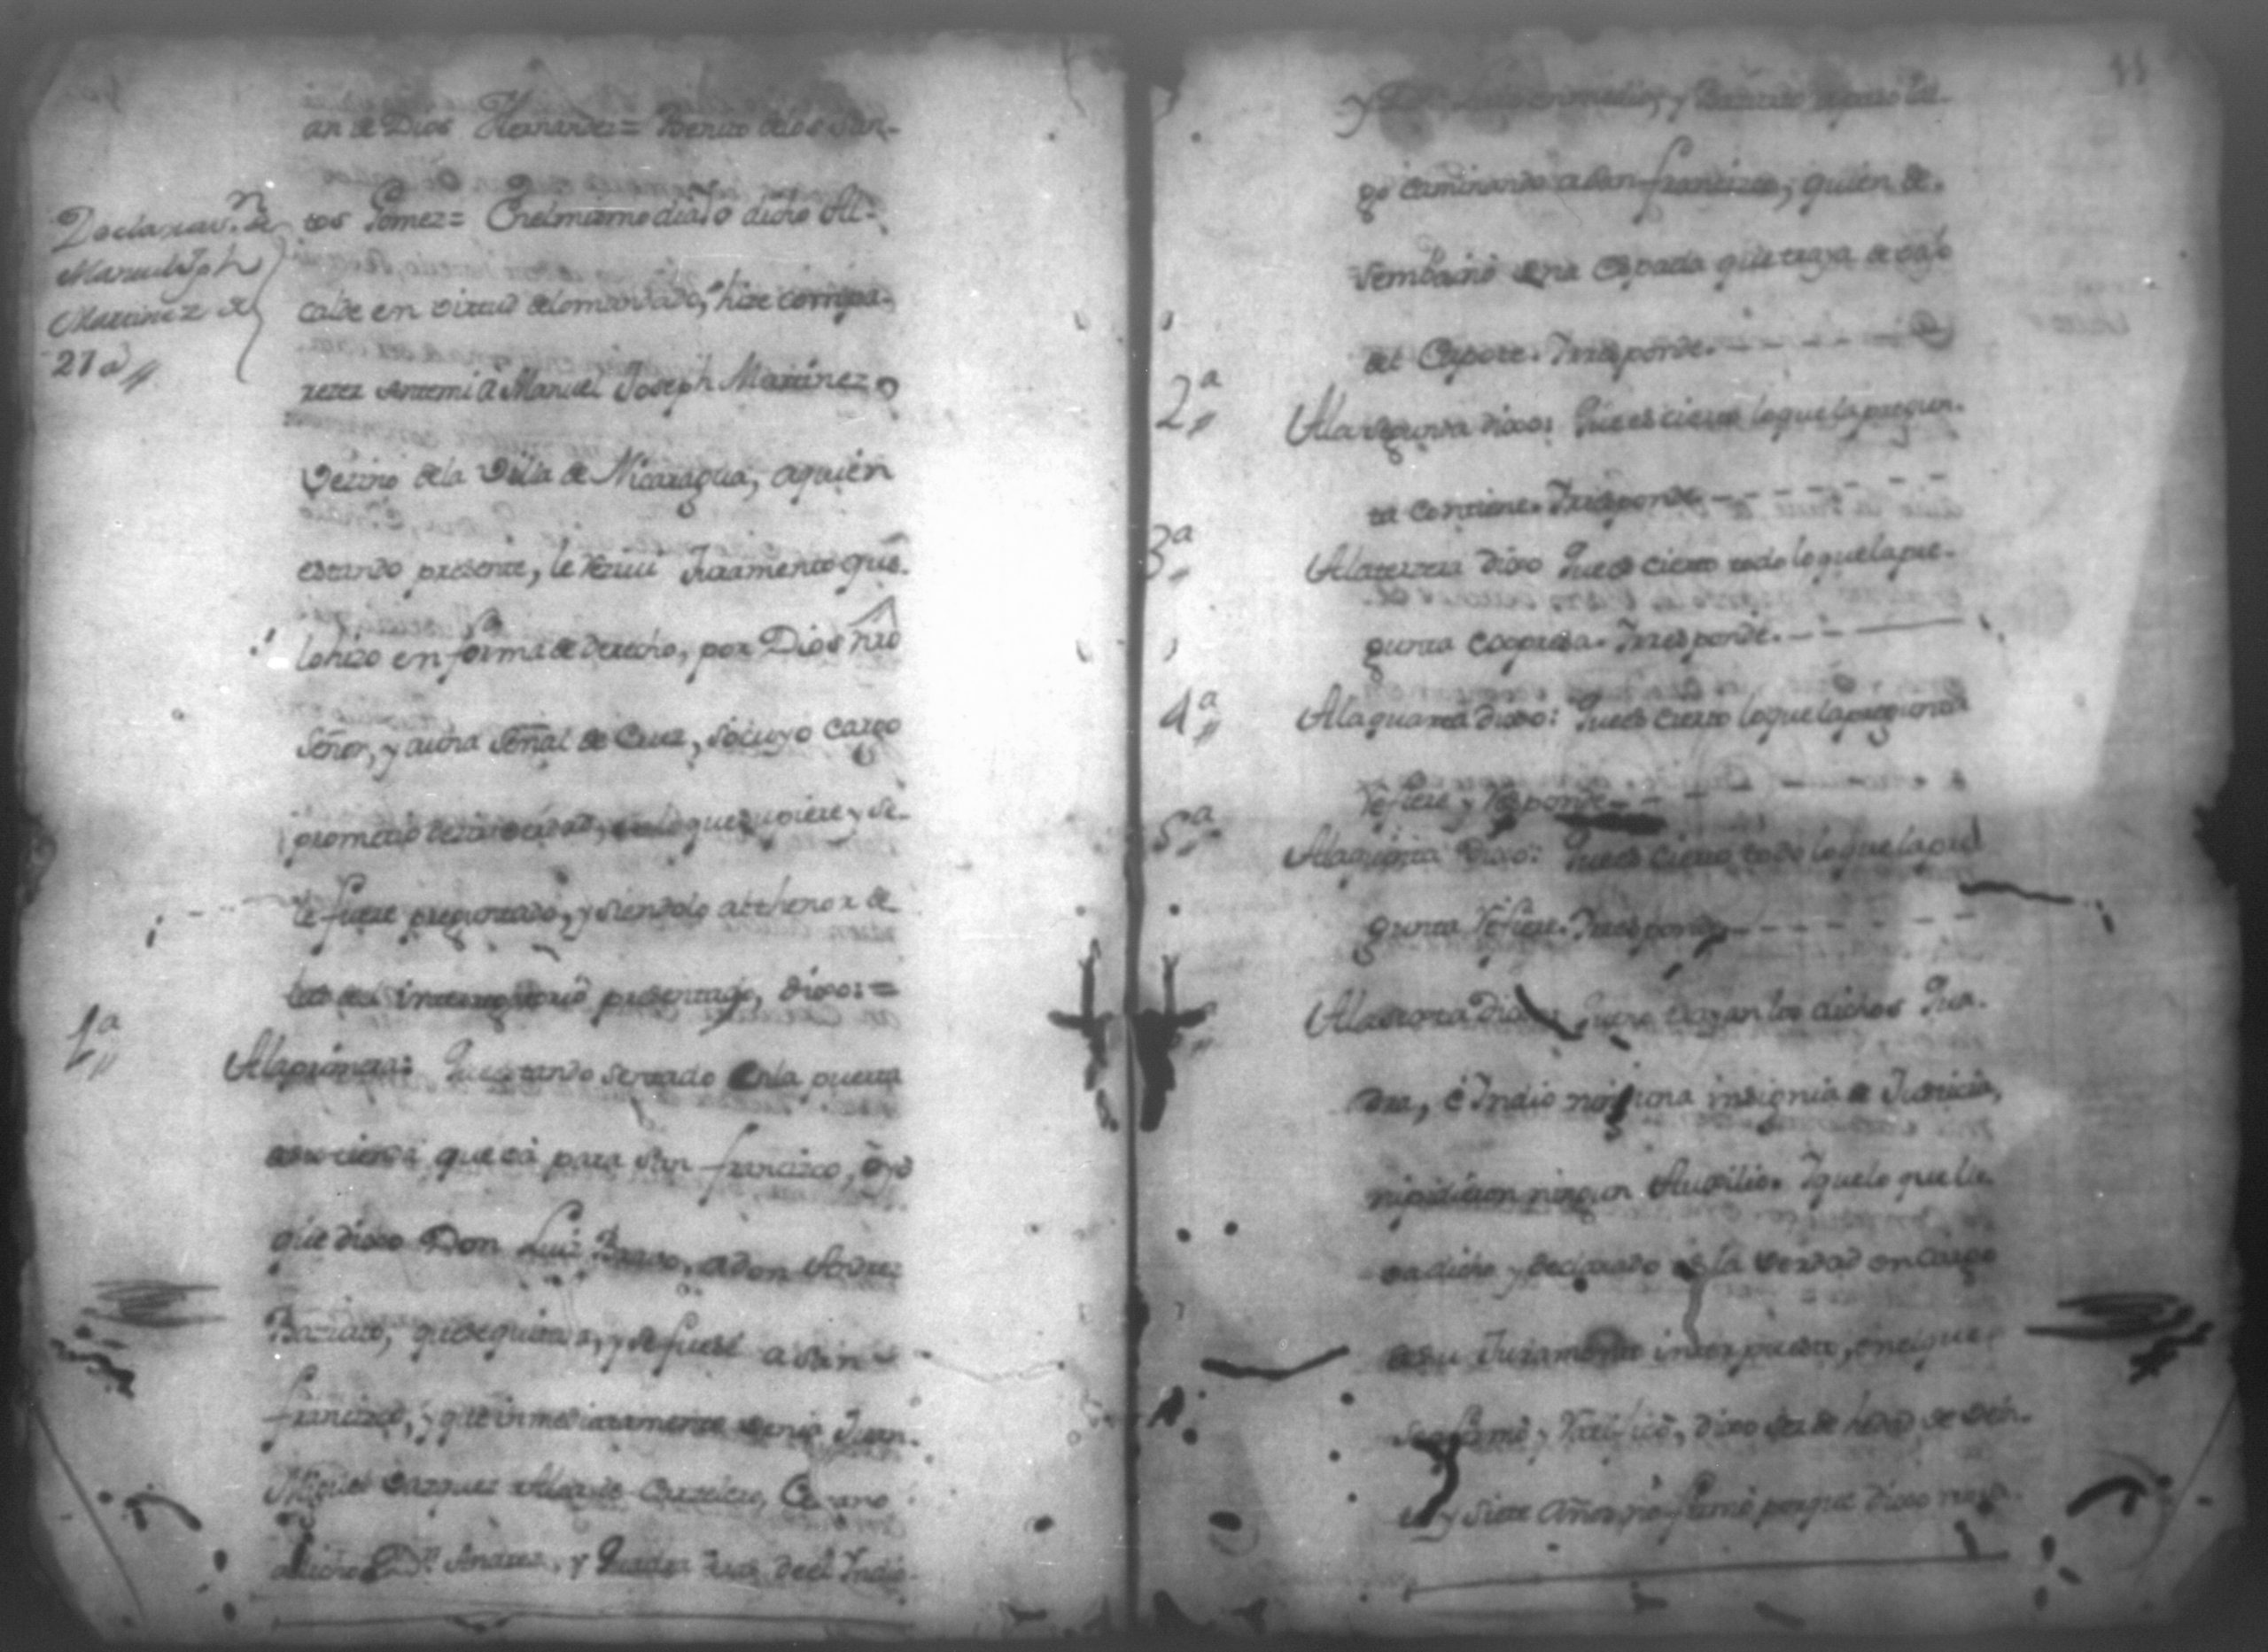 an de Dios Hernandez = Benito de los San-
tos Gomez = En el mismo dia Yo dicho Al-
calde en virtud de lo mandado, hize compa-
rezer ante mi à Manuel Joseph Martinez,
Vezino de la Villa de Nicaragua, a quien
estando presente, le recivi Juramento que
lo hizo en forma de derecho, por Dios nro
Señor, y a una señal de Cruz, so cuyo cargo
prometio dezir verdad, en lo que supiere y se
le fuere preguntado, y siendolo al thenor de
interrogatorio presentado, dixo: =
Declarazn. de
Manuel Jph
Martinez de
27 a
1a
A la primera: Que estando sentado en la puerta
de su tienda que vá para San Francisco, oyó
que dixo Don Luis Bravo, a don Andres
que se quitara, y se fuese a San
Francisco, y que inmediatamente venia Juan
Miguel Vazquez Alcalde
a dicho Dn. Andres, y Quadra tras de el Indio
11
y Dn. y
go caminando a San Francisco, quien de-
sembainó una Espada que traya devajo
del Capote. Y responde. - - - -
2a
A la segunda dixo: Que es cierto lo que la pregun-
ta contiene. Y responde - - - -
3a
A la terzera dixo Que es cierto todo lo que la pre-
gunta expresa. Y responde. - -
4a
A la quarta dixo: Que es cierto lo que la pregunta
refiere y responde - -
5a
A la quinta dixo: Que es cierto todo lo que la pre
gunta refiere. Y responde - - - -
A la sexta dixo: Que no trayan los dichos Qua-
dra, é Indio ninguna insignia de Justicia,
ni pidieron ningun Auxilio. Y que lo que lle-
va dicho y declarado es la verdad en cargo
de su Juramento interpuesto, en el que
se afirmó y ratificó, dixo ser de hedad de vein-
te y siete años, no firmó porque dixo no